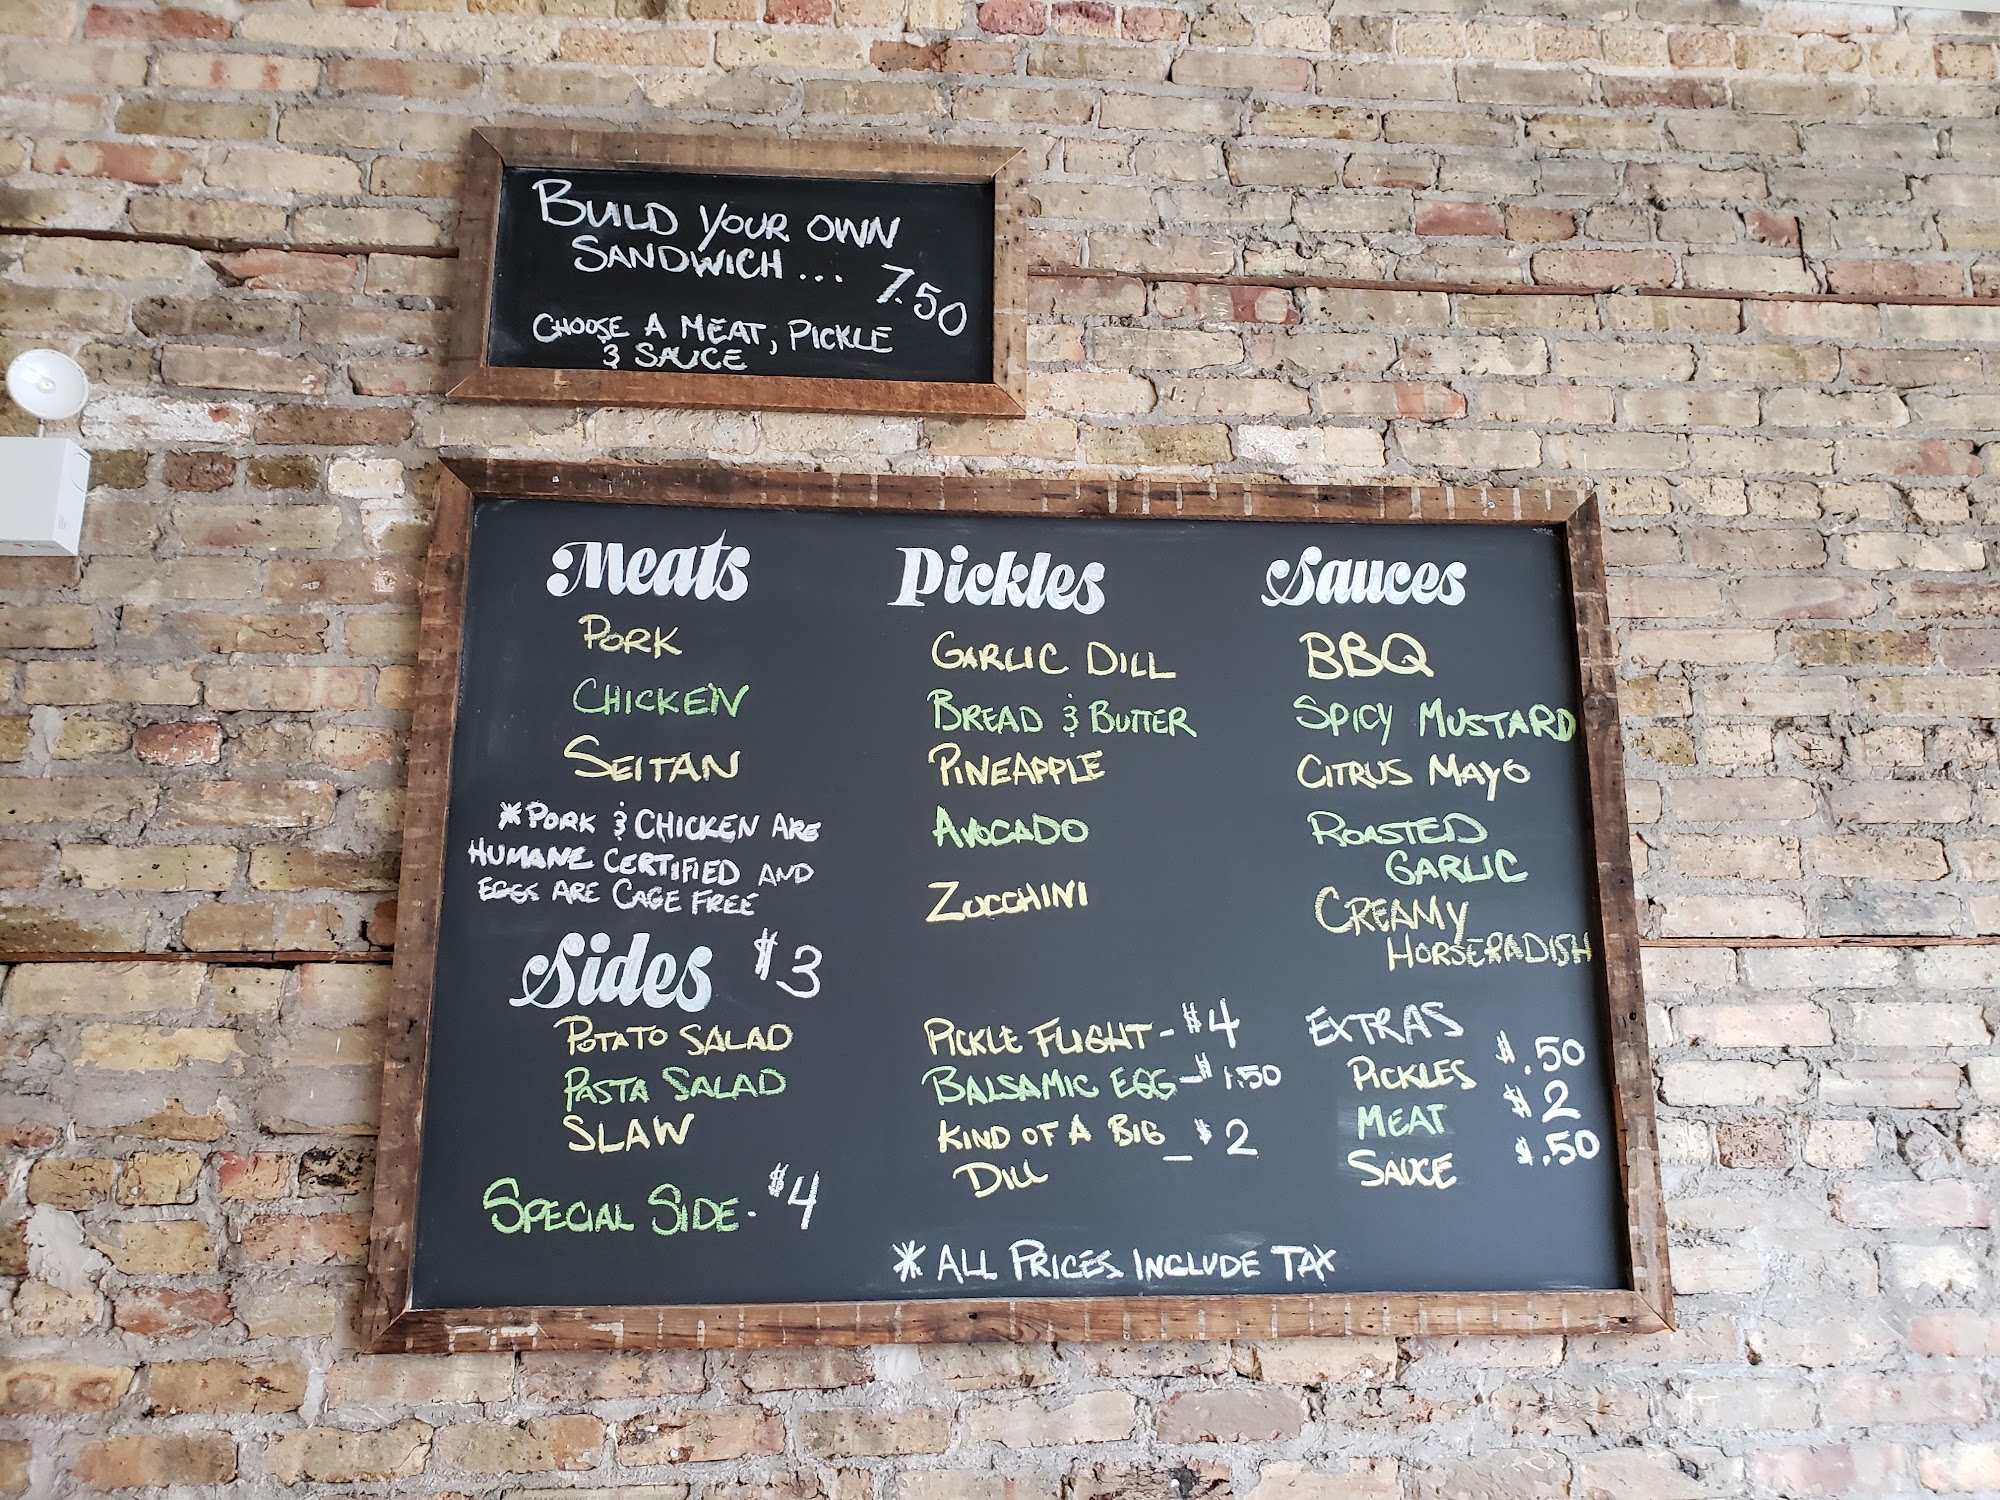 BUILD YOUR OWN
SANDWICH ... 7.50
CHOOSE A MEAT, PICKLE
& SAUCE
Meats
PORK
CHICKEN
SEITAN
*PORK & CHICKEN ARE
HUMANE CERTIFIED AND
EGGS ARE CAGE FREE
Sides $3
POTATO SALAD
PASTA SALAD
SLAW
SPECIAL SIDE - $4
Pickles
GARLIC DILL
BREAD & BUTTER
PINEAPPLE
AVOCADO
ZUCCHINI
PICKLE FLIGHT - $4
BALSAMIC EGG - $1.50
KIND OF A BIG - $2
DILL
Sauces
BBQ
SPICY MUSTARD
CITRUS MAYO
ROASTED
GARLIC
CREAMY
HORSERADISH
EXTRAS
PICKLES $.50
MEAT $2
SAUCE $.50
* ALL PRICES INCLUDE TAX